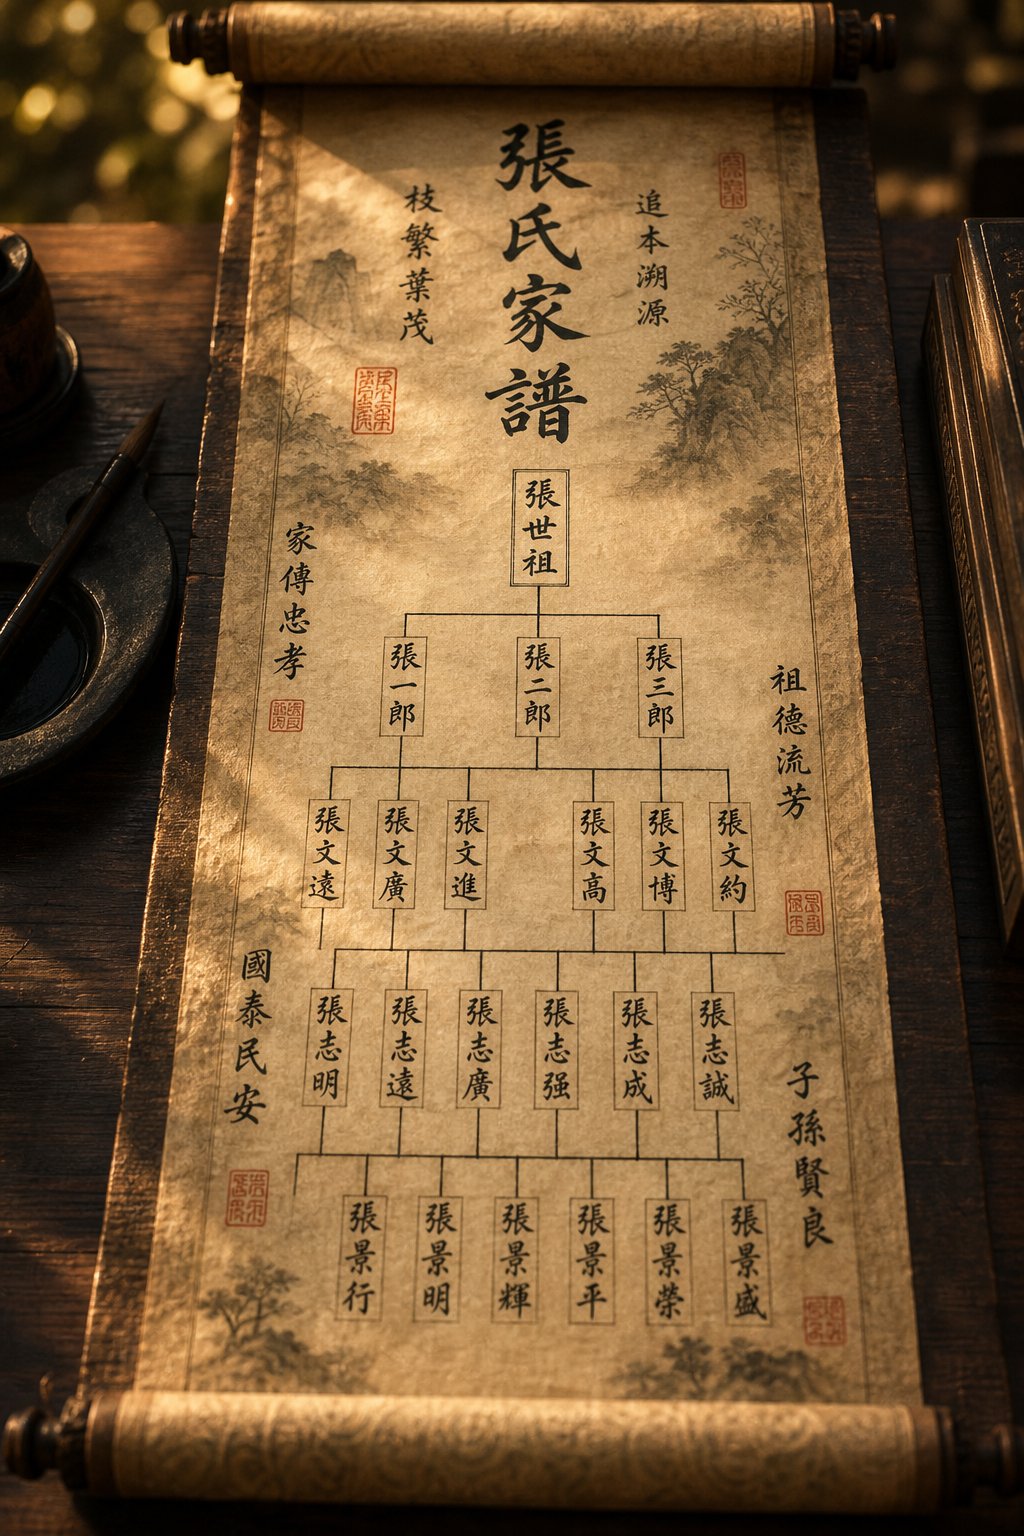 張氏家譜
追本溯源
枝繁葉茂
張世祖
張一郎
張二郎
張三郎
家傳忠孝
祖德流芳
張文遠
張文廣
張文進
張文高
張文博
張文約
國泰民安
張志明
張志遠
張志廣
張志强
張志成
張志誠
子孫賢良
張景行
張景明
張景輝
張景平
張景榮
張景盛